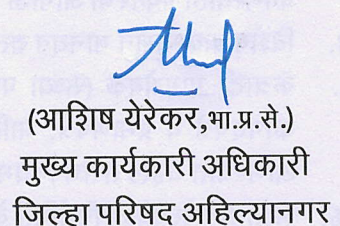 (आशिष येरेकर,भा.प्र.से.)
मुख्य कार्यकारी अधिकारी
जिल्हा परिषद अहिल्यानगर